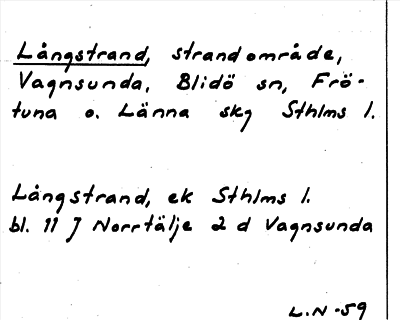 Långstrand, strandområde,
Vagnsunda, Blidö sn, Frö-
tuna o. Länna skg Sthlms l.
Långstrand, ek Sthlms l.
bl. 11 J Norrtälje 2 d Vagnsunda
L.N -59